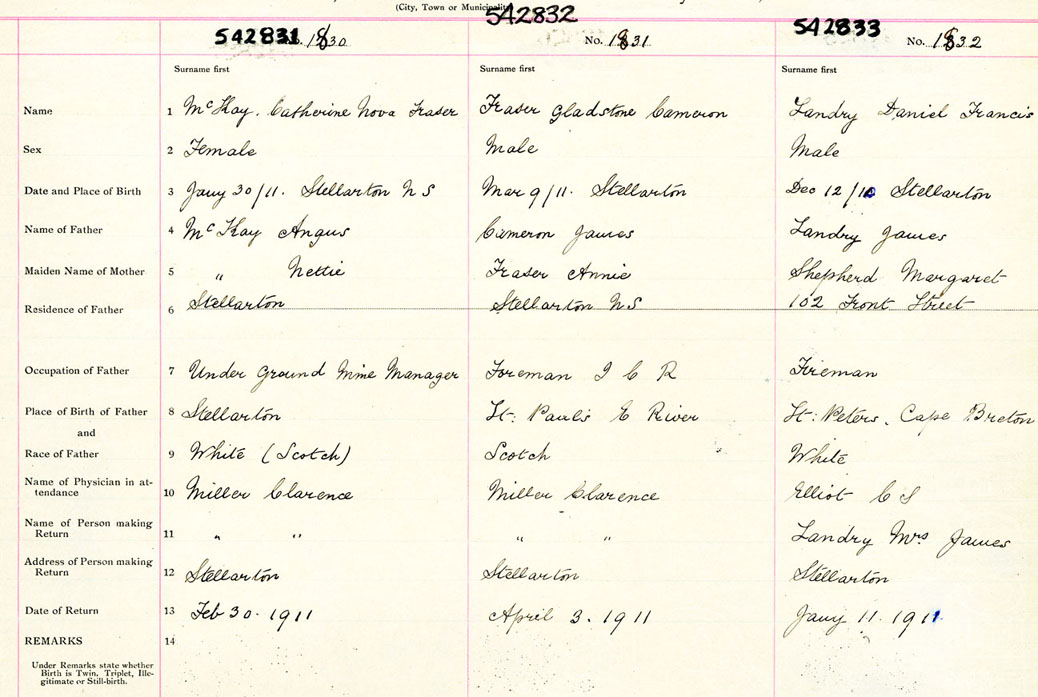 (City, Town or Municipality)
542831 No. 1830 542832 No. 1831 542833 No. 1832
Surname first Surname first Surname first
Name 1 McKay. Catherine Nova Fraser Fraser Gladstone Cameron Landry Daniel Francis
Sex 2 Female Male Male
Date and Place of Birth 3 Jany 30/11. Stellarton N S Mar 9/11. Stellarton Dec 12/10 Stellarton
Name of Father 4 McKay Angus Cameron James Landry James
Maiden Name of Mother 5 " Nettie Fraser Annie Shepherd Margaret
Residence of Father 6 Stellarton Stellarton NS 102 Front Street
Occupation of Father 7 Under Ground Mine Manager Foreman I C R Fireman
Place of Birth of Father 8 Stellarton St. Pauls E River St. Peters. Cape Breton
and
Race of Father 9 White (Scotch) Scotch White
Name of Physician in at-
tendance 10 Miller Clarence Miller Clarence Elliot C S
Name of Person making
Return 11 " " " " Landry Mrs James
Address of Person making
Return 12 Stellarton Stellarton Stellarton
Date of Return 13 Feb 30. 1911 April 3. 1911 Jany 11. 1911
REMARKS 14
Under Remarks state whether
Birth is Twin, Triplet, Ille-
gitimate or Still-birth.